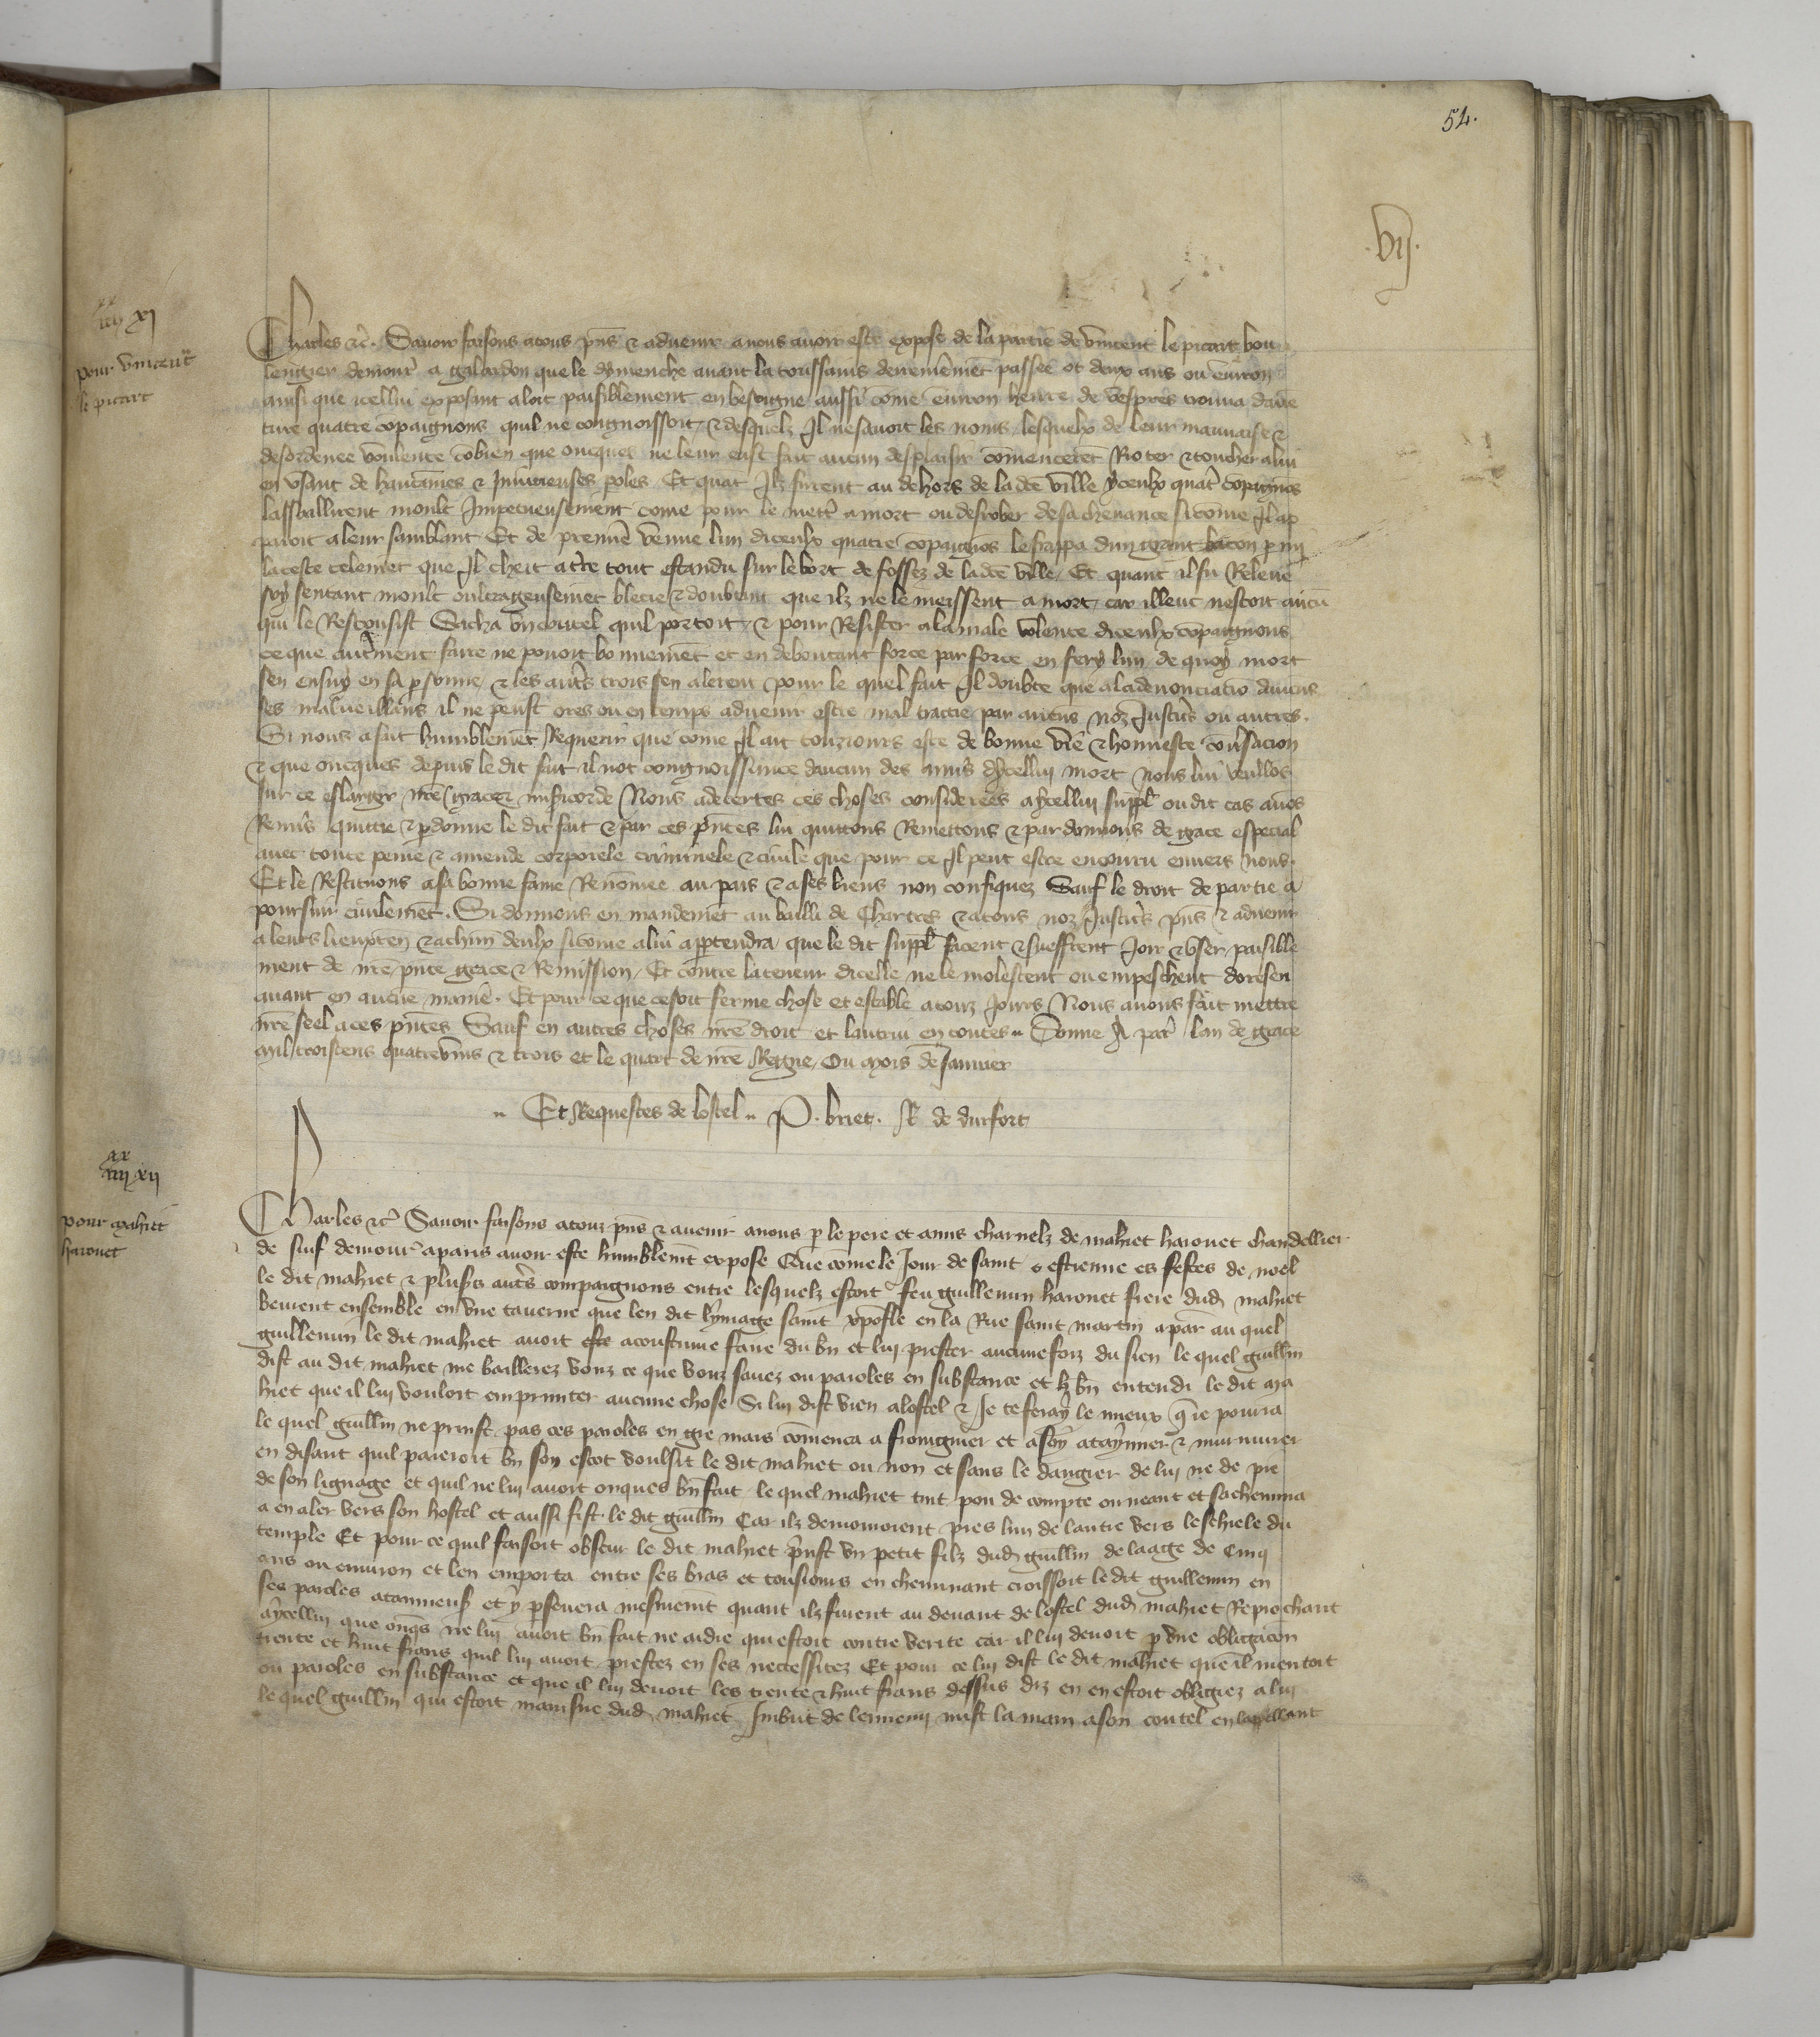 54.
.vij.
xx
iiij xj
pour vincent
le picart
Charles etc̃. Sauoir faisons a tous pñs & aduenir a nous auoir este expose de la partie de vincent le picart bou
lengier demour̃ a galardon que le dymenche auant la toussains derreniemẽt passee ot deux ans ou enuiron
ainsi que icellui exposant aloit paisiblement en besoigne aussi cõme enuiron heure de vespres trouua dauẽ
ture quatre cõpaignons quil ne congnoissoit & desquelz Il ne sauoit les noms lesquelx de leur mauuaise &
desordenee voulente cõbien que oncques ne leur eust fait aucun desplaisir cõmencerẽt Rioter & toucher a lui
en vsant de hautaines & Iniurieuses ploles Et quãt Ilz furent au dehors de la dcẽ ville ycculx quat̃ cõpaignõs
lassaillirent moult Impetueusement cõme pour le mett̃ a mort ou desrober de sa cheuance si cõme Il ap
paroit a leur samblant Et de premiẽ venue lun diceulx quatre cõpaignõs le frappa dun grant baton p my
la teste telemẽt que Il cheit a tr̃e tout estandu sur le bort de fossez de la dcẽ ville / Et quant il fu Releue
soy sentant moult oultrageusemẽt blecie & doubtant que ilz ne le meissent a mort / car illeuc nestoit aucũ
qui le Resconsist Sacha vn coutel quil portoit / & pour Resister a la male volente diceulx cõpaignons
ce que aut̃ment faire ne pouoit bonnemẽt et en deboutant force par force en fery lun de quoy mort
sen ensuy en sa psonne / & les aut̃s trois sen alerent pour le quel fait Il doubte que a la denonciatiõ daucũs
ses malueillãs il ne peust ores ou en temps aduenir estre mal traictie par aucũs noz Justic̃s ou autres.
Si nous a fait humblemẽt Requerir que cõme Il ait touziours este de bonne vie & honneste cõũsacion
& que oncques depuis le dit fait il not congnoissance daucun des amis dycellui mort Nous lui veullõs
sur ce eslargir nr̃e grace & misericorde Nous adecertes ces choses considerees a ycellui suppl̃ ou dit cas auõs
Remis quittie & pdonne le dit fait & par ces pñtes lui quittons Remettons & pardonnons de grace especial
auec toute peine & amende corporele criminele & ciuile que pour ce Il peut estre encouru enuers nous.
Et le Restituons a sa bonne fame Renõmee au pais & a ses biens non confisquez Sauf le droit de partie a
poursuir ciuilemẽt. Si donnons en mandemẽt au bailli de Chartres & a tous noz Justic̃s pñs & aduenir
a leurs lieuxten̄ & a chũn deulx si cõme a lui apptendra / que le dit suppl̃ facent & sueffrent Joir & vser paisible
ment de nr̃e pñte grace & Remission / Et contre la teneur dicelle ne le molestent ou empeschent doresen
auant en aucũe maniẽ. Et pour ce que ce soit ferme chose et estable a touz Jours Nous auons fait mettre
nr̃e seel a ces pñtes Sauf en autres choses nr̃e droit et lautrui en toutes Donne A par̃ lan de grace
mil troiscens quatrevins & trois et le quart de nr̃e Regne / Ou mois de Januier
Et Requestes de lostel P. briet. R de durfort
xx
iiij xij
pour mahiet
harouet
Charles etc̃ Sauoir faisons a touz pñs & auenir a nous p le pere et amis charnelz de mahiet harouet chandellier
de suif demour̃ a paris auoir este humblemẽt expose Que cõme le Jour de saint estienne es festes de noel
le dit mahiet & plus̃ aut̃s compaignons entre lesquelz estoit feu guillemin harouet frere dud mahiet
beurent ensemble en vne tauerne que len dit lymage saint xpofle en la Rue saint martin a par̃ au quel
guillemin le dit mahiet auoit este acoustume faire du bñ et lui prester aucuneffoiz du sien le quel guill̃in
dist au dit mahiet me baillerez vouz ce que vouz sauez ou paroles en substance et bñ entendi le dit ma
hiet que il lui vouloit emprunter aucune chose Si lui dist vien a lostel & Je te feray le mieux q̃ ie pourra
le quel guill̃in ne prinst pas ces paroles en gre mais cõmenca a froingnier et a soy atayner & murmurer
en disant quil paieroit bñ son escot voulsit le dit mahiet ou non et sans le dangier de lui ne de pie
de son lignage et quil ne lui auoit onques bñ fait le quel mahiet tint pou de compte ou neant et sachemina
a en aler vers son hostel et aussi fist le dit guill̃in Car ilz demouroient pres lun de lautre vers leschiele du
temple Et pour ce quil faisoit obscur le dit mahiet prinst vn petit filz dud guill̃in de laage de Cinq
ans ou enuiron et len emporta entre ses bras et tousiours en cheminant croissoit le dit guillemin en
ses paroles atayneus̃ et y pseuera mesmemt quant ilz furent au deuant de lostel dud mahiet Reprochant
a ycellui que onq̃s ne lui auoit bñ fait ne aidie qui estoit contre verite car il lui deuoit p vne obligacõn
trente et huit frans quil lui auoit prestez en ses necessitez Et pour ce lui dist le dit mahiet que il mentoit
ou paroles en substance et que il lui deuoit les trente & huit frans dessus diz en en estoit obligiez a lui
le quel guill̃in qui estoit mainsne dud mahiet Imbut de lennemi mist la main a son coutel en lappellant